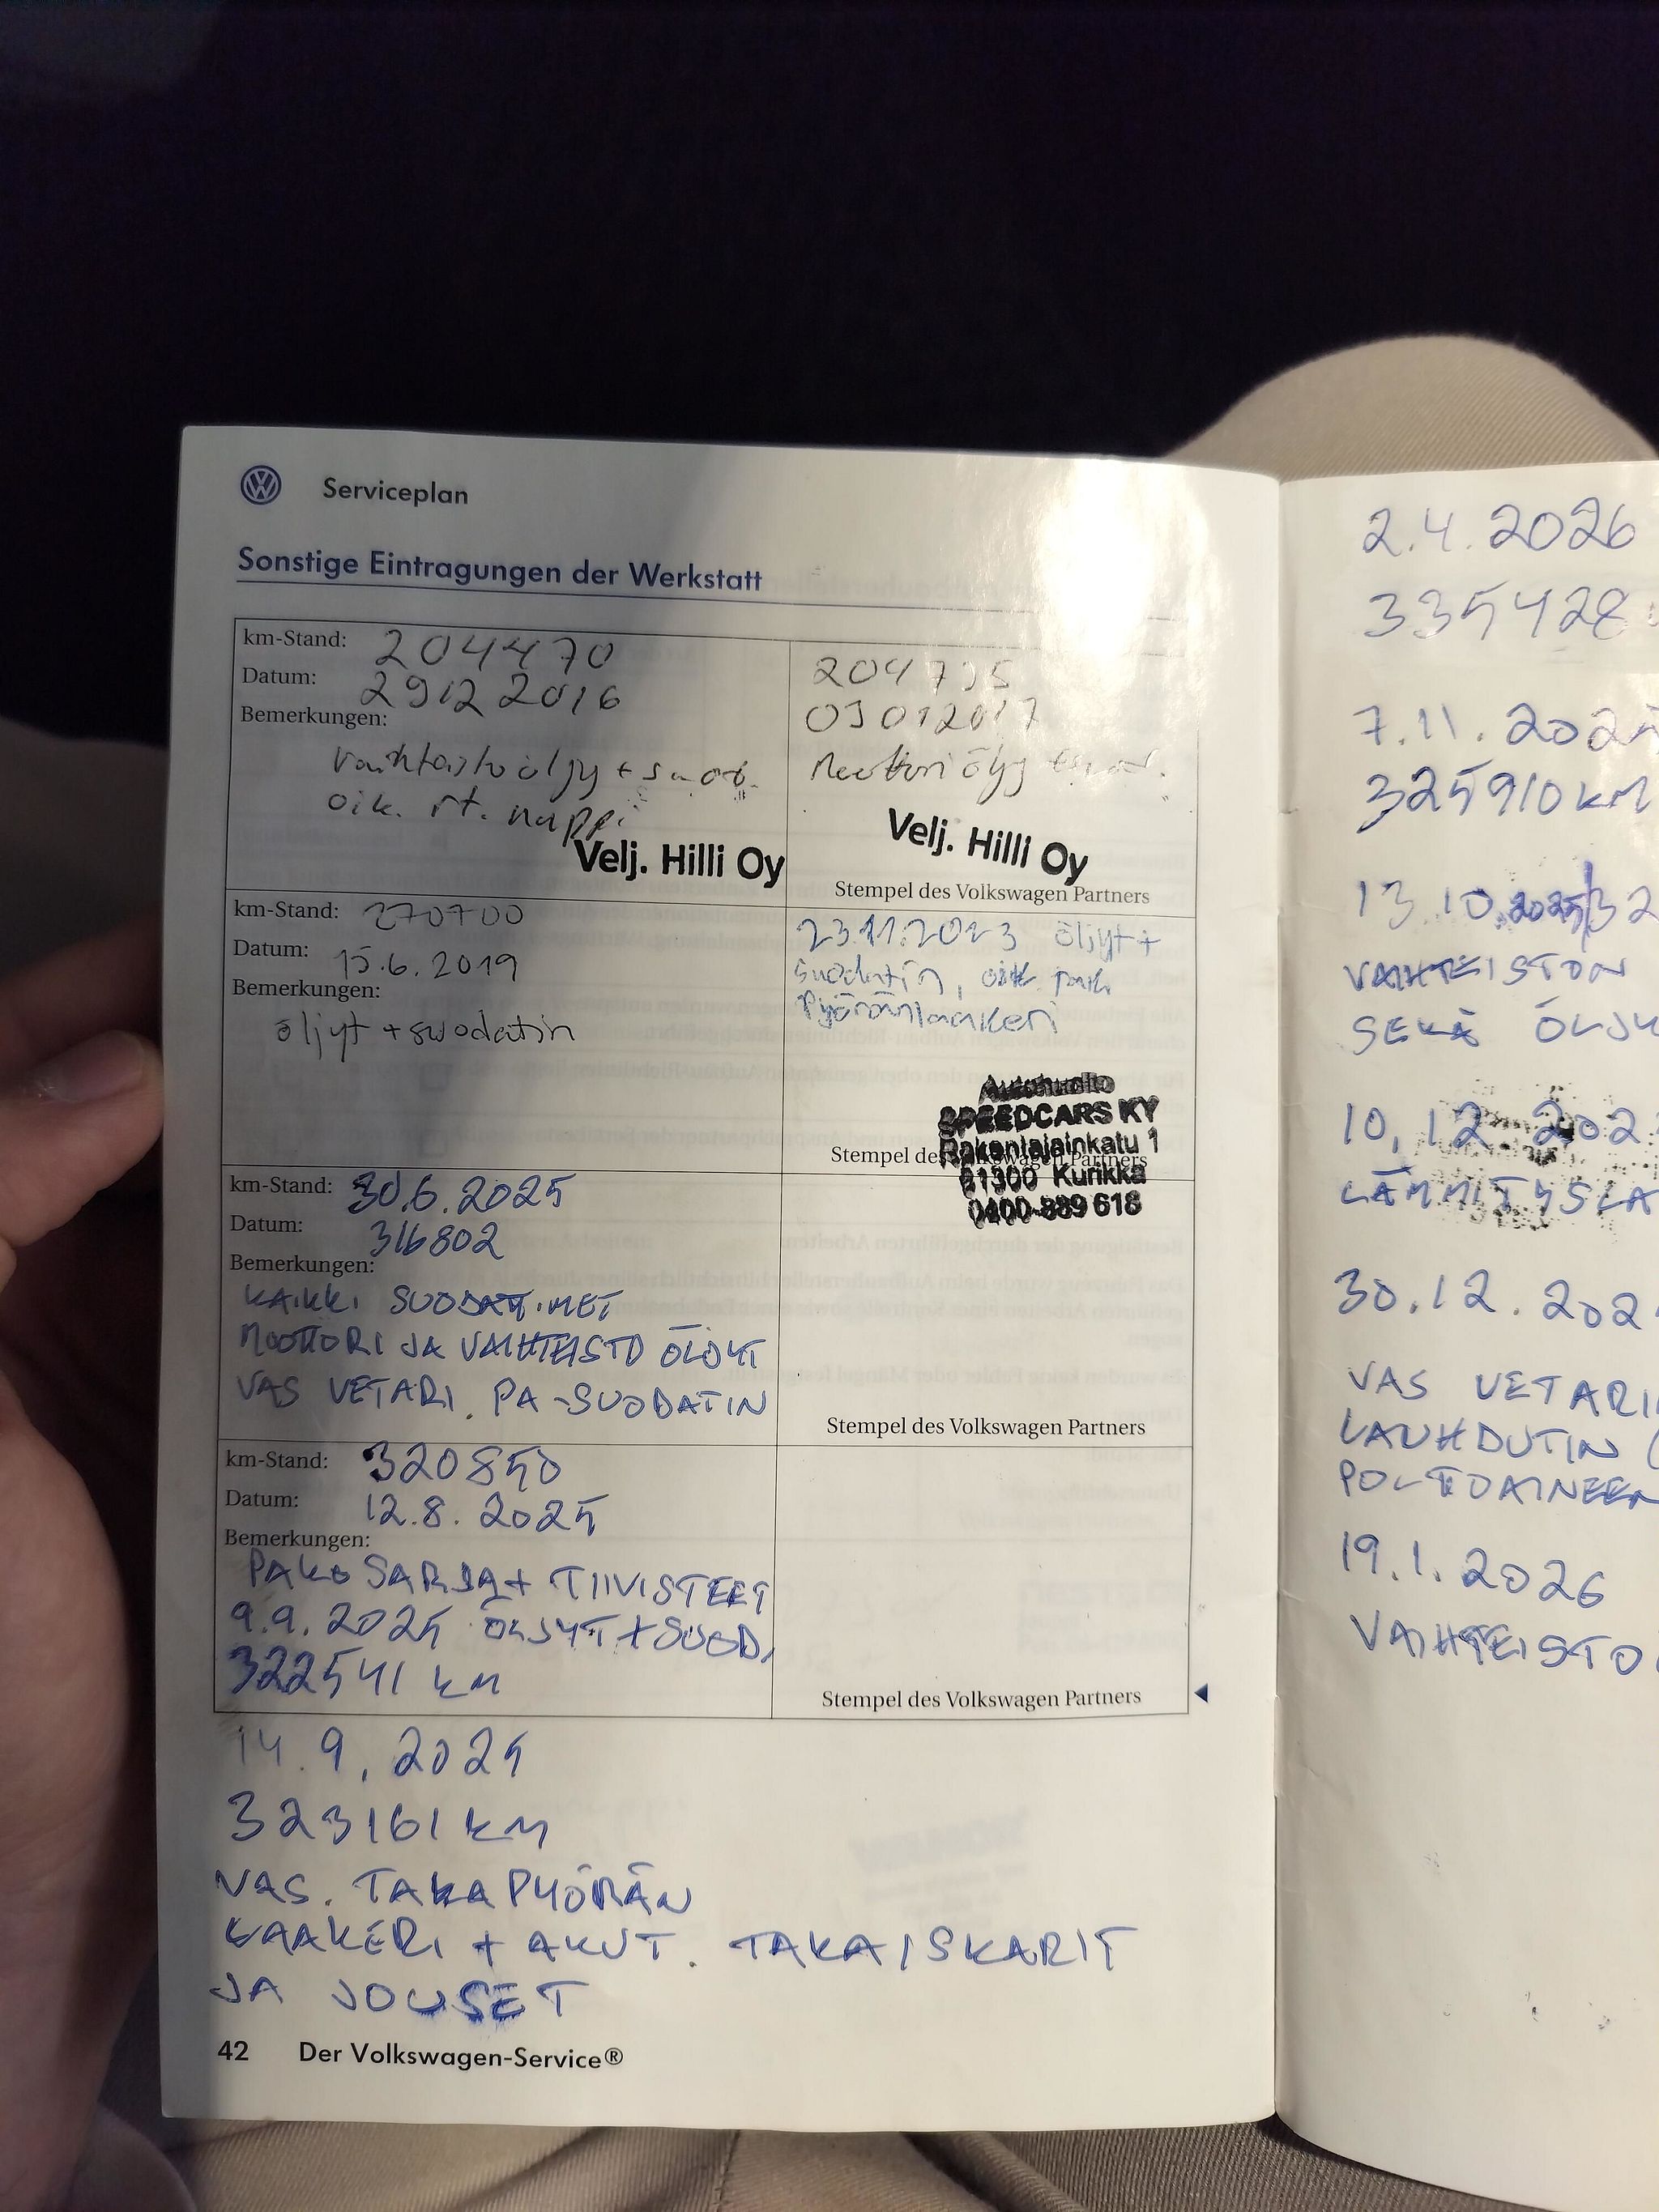 Serviceplan
Sonstige Eintragungen der Werkstatt
km-Stand: 204470
Datum: 29122016
Bemerkungen:
Vaihteistoöljy + suod.
oik. rt. nuppi
Velj. Hilli Oy
204735
03012017
Moottoriöljy
Velj. Hilli Oy
Stempel des Volkswagen Partners
km-Stand: 270700
Datum: 15.6.2019
Bemerkungen:
öljyt + suodatin
23.11.2023 öljyt +
suodatin, oik.
Pyöränlaakeri
Autohuolto
SPEEDCARS KY
Rakentajainkatu 1
61300 Kurikka
0400-889 618
Stempel des Volkswagen Partners
km-Stand: 30.6.2025
Datum: 316802
Bemerkungen:
KAIKKI SUODATTIMET
MOOTTORI JA VAIHTEISTO ÖLJYT
VAS VETARI. PA-SUODATIN
Stempel des Volkswagen Partners
km-Stand: 320850
Datum: 12.8.2025
Bemerkungen:
PAKOSARJA + TIIVISTEET
9.9.2025 ÖLJYT + SUOD.
322541 KM
Stempel des Volkswagen Partners
14.9.2025
323161 KM
VAS. TAKAPYÖRÄN
LAAKERI + AKUT. TAKAISKARIT
JA JOUSET
42 Der Volkswagen-Service®
2.4.2026
335428
7.11.2025
325910 KM
13.10.2025 32
VAIHTEISTON
SEKÄ ÖLJY
10.12.202
LÄMMITYSLA
30.12.202
VAS VETARI
LAUHDUTIN (
POLTTOAINEEN
19.1.2026
VAIHTEISTO